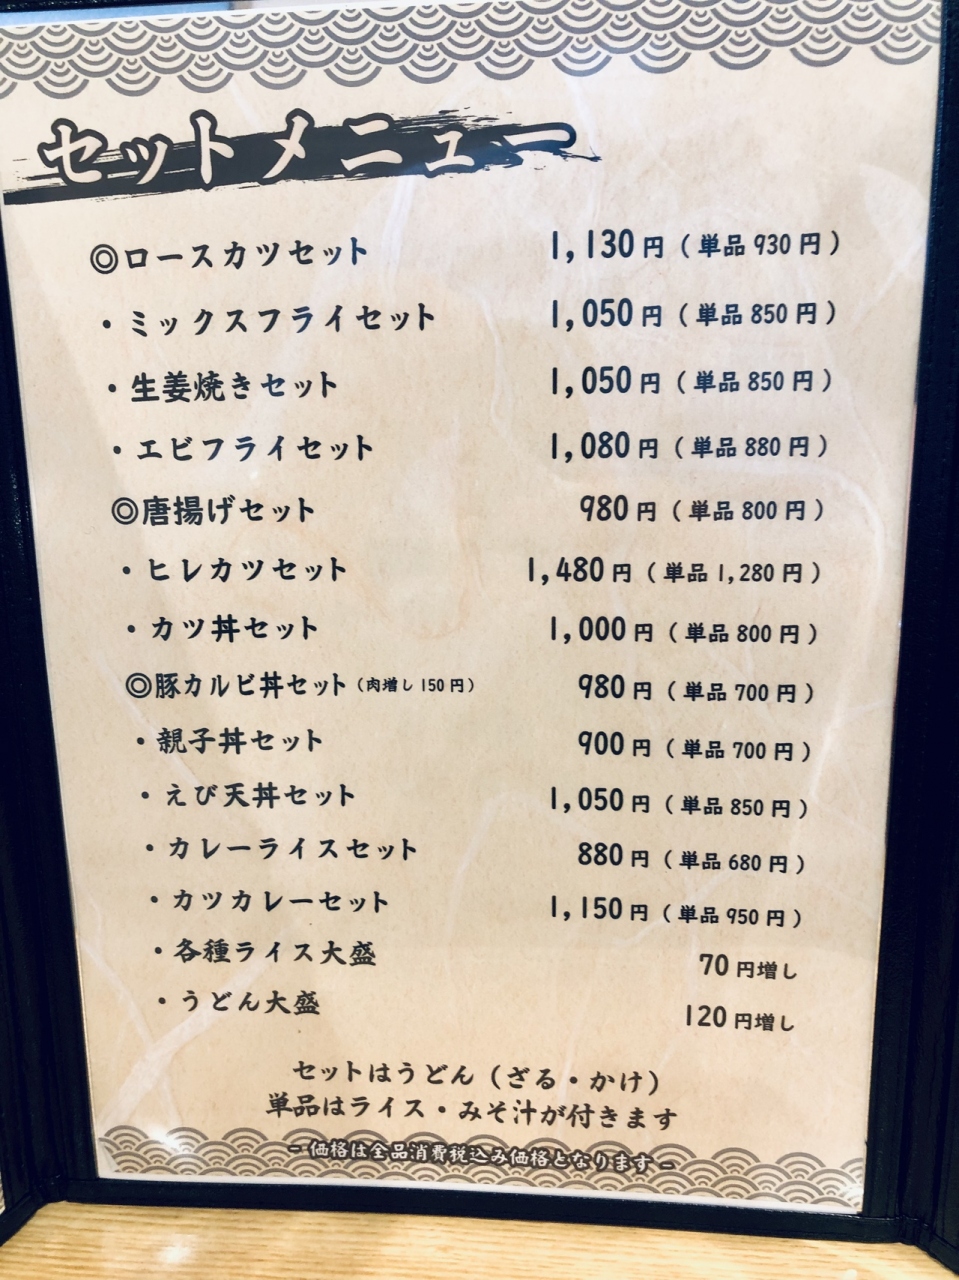 セットメニュー
◎ロースカツセット 1,130円（単品930円）
・ミックスフライセット 1,050円（単品850円）
・生姜焼きセット 1,050円（単品850円）
・エビフライセット 1,080円（単品880円）
◎唐揚げセット 980円（単品800円）
・ヒレカツセット 1,480円（単品1,280円）
・カツ丼セット 1,000円（単品800円）
◎豚カルビ丼セット（肉増し150円） 980円（単品700円）
・親子丼セット 900円（単品700円）
・えび天丼セット 1,050円（単品850円）
・カレーライスセット 880円（単品680円）
・カツカレーセット 1,150円（単品950円）
・各種ライス大盛 70円増し
・うどん大盛 120円増し
セットはうどん（ざる・かけ）
単品はライス・みそ汁が付きます
－価格は全品消費税込み価格となります－